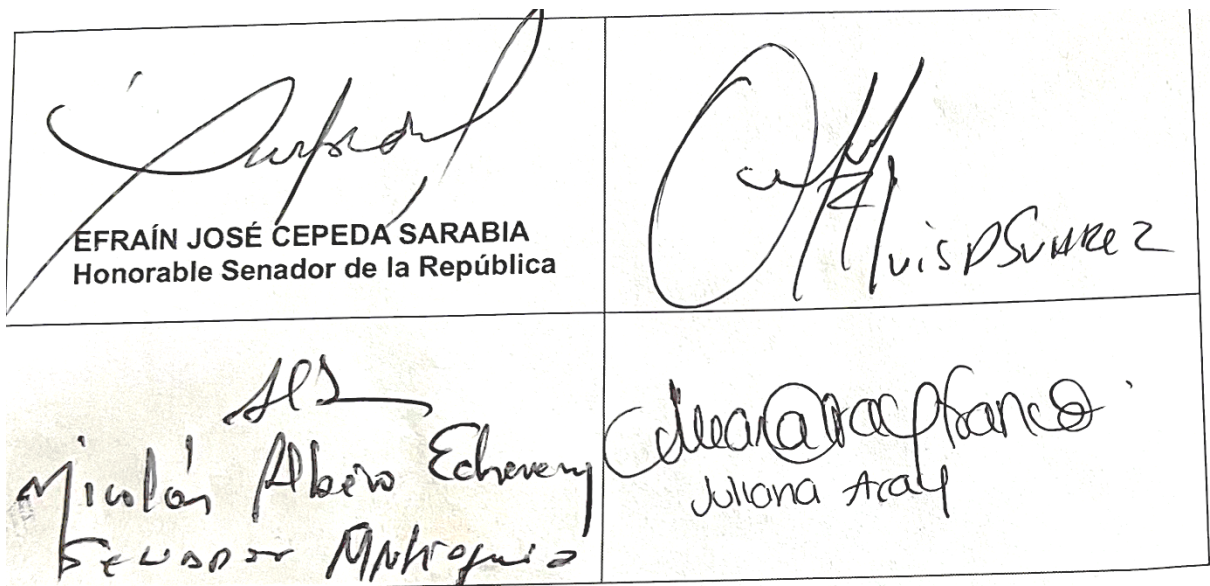 EFRAÍN JOSÉ CEPEDA SARABIA
Honorable Senador de la República
Luis D SUAREZ
Nicolás Albeiro Echeverry
Senador Antioquia
Juliana Aray